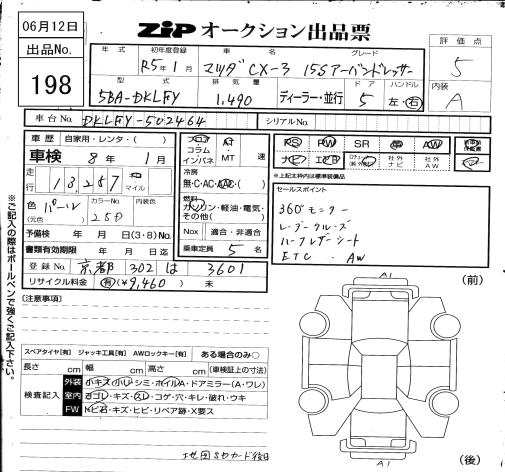 06月12日
ZIP オークション出品票
出品No.
198
年式
初年度登録
車名
グレード
評価点
R5年1月
マツダ CX-3
15S アーバンドレッサー
5
型式
排気量
ドア
ハンドル
内装
5BA-DKLFY
1,490
ディーラー・並行
5
左・右
A
車台No.
DKLFY-502464
シリアルNo.
車歴
自家用・レンタ・( )
車検
8年
1月
走行
13,257
マイル
色
(元色)
パール
カラーNo.
25D
内装色
予備検
年 月 日(3・8)No.
書類有効期限
年 月 日迄
登録No.
京都 302 は 3601
リサイクル料金
有(¥9,460)
未
フロア
コラム
インパネ
AT
MT
速
冷房
無・C・AC・AAC・( )
燃料
ガソリン・軽油・電気・
その他( )
Nox
適合・非適合
乗車定員
5
名
PS
PW
SR
AW
ナビ
エアB
社外ナビ
社外AW
※上記太枠内は標準装備品
セールスポイント
360°モニター
レーダークルーズ
ハーフレザーシート
ETC . AW
(注意事項)
スペアタイヤ[有] ジャッキ工具[有] AWロックキー[有]
ある場合のみ○
長さ cm
幅 cm
高さ cm
(車検証上の寸法)
検査記入
外装
小キズ・小ヘコ・シミ・ホイルA・ドアミラー(A・ワレ)
室内
ヨゴレ・キズ・スレ・コゲ・穴・キレ・破れ・ウキ
FW
トビ石・キズ・ヒビ・リペア跡・X要ス
地図SDカード後日
A1
(前)
A1
(後)
※ご記入の際はボールペンで強くご記入下さい。